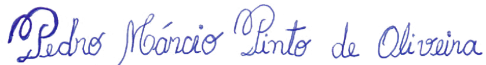 Pedro Márcio Pinto de Oliveira